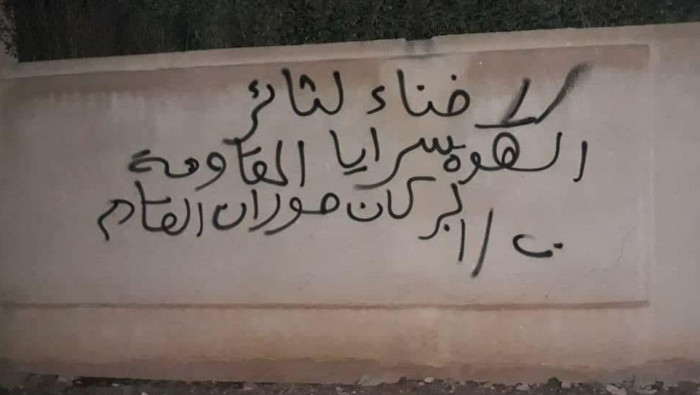 لا ضناء لثائر
الهوه سرايا المقاومة
ب / البركان حوران القادم